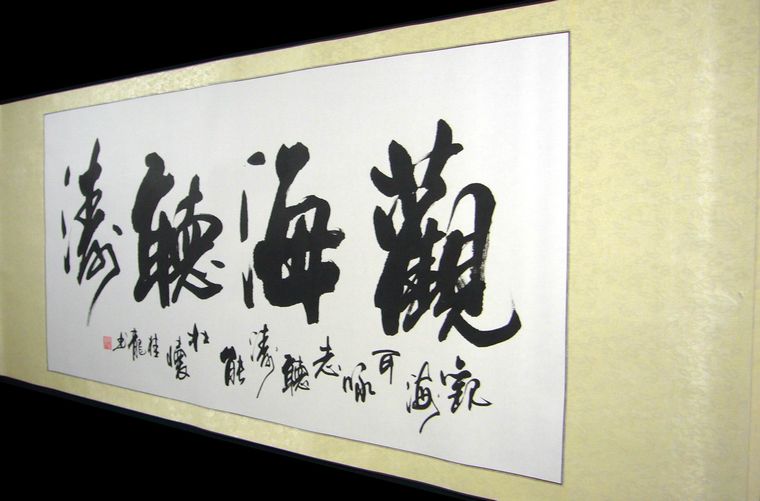 觀海聽濤
觀海可詠志聽濤能壯懷桂龍書